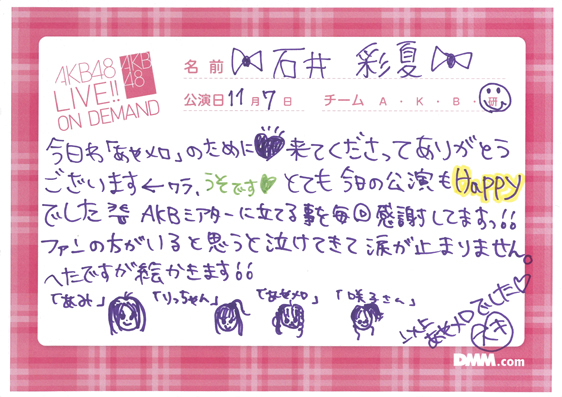 AKB48
LIVE!!
ON DEMAND
AKB
48
名前 石井 彩夏
公演日 11月7日 チーム A・K・B・研
今日わ「あやメロ」のために♥来てくださってありがとう
ございます←ワラ、うそです♥とても今日の公演もHappy
でした AKBシアターに立てる事を毎回感謝してますっ!!
ファンの方がいると思うと泣けてきて涙が止まりません。
へたですが絵かきます!!
「あみ」 「りっちゃん」 「あやメロ」 「咲子さん」
以上
あやメロでした♡
DMM.com